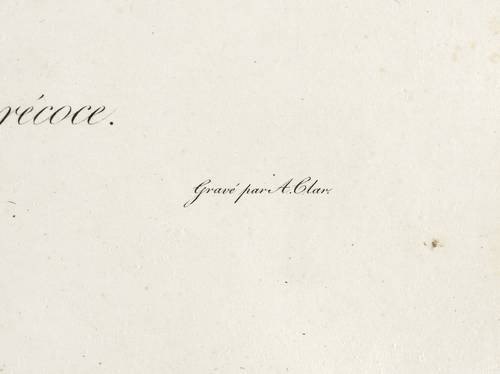 récoce.
Gravé par A. Clar.